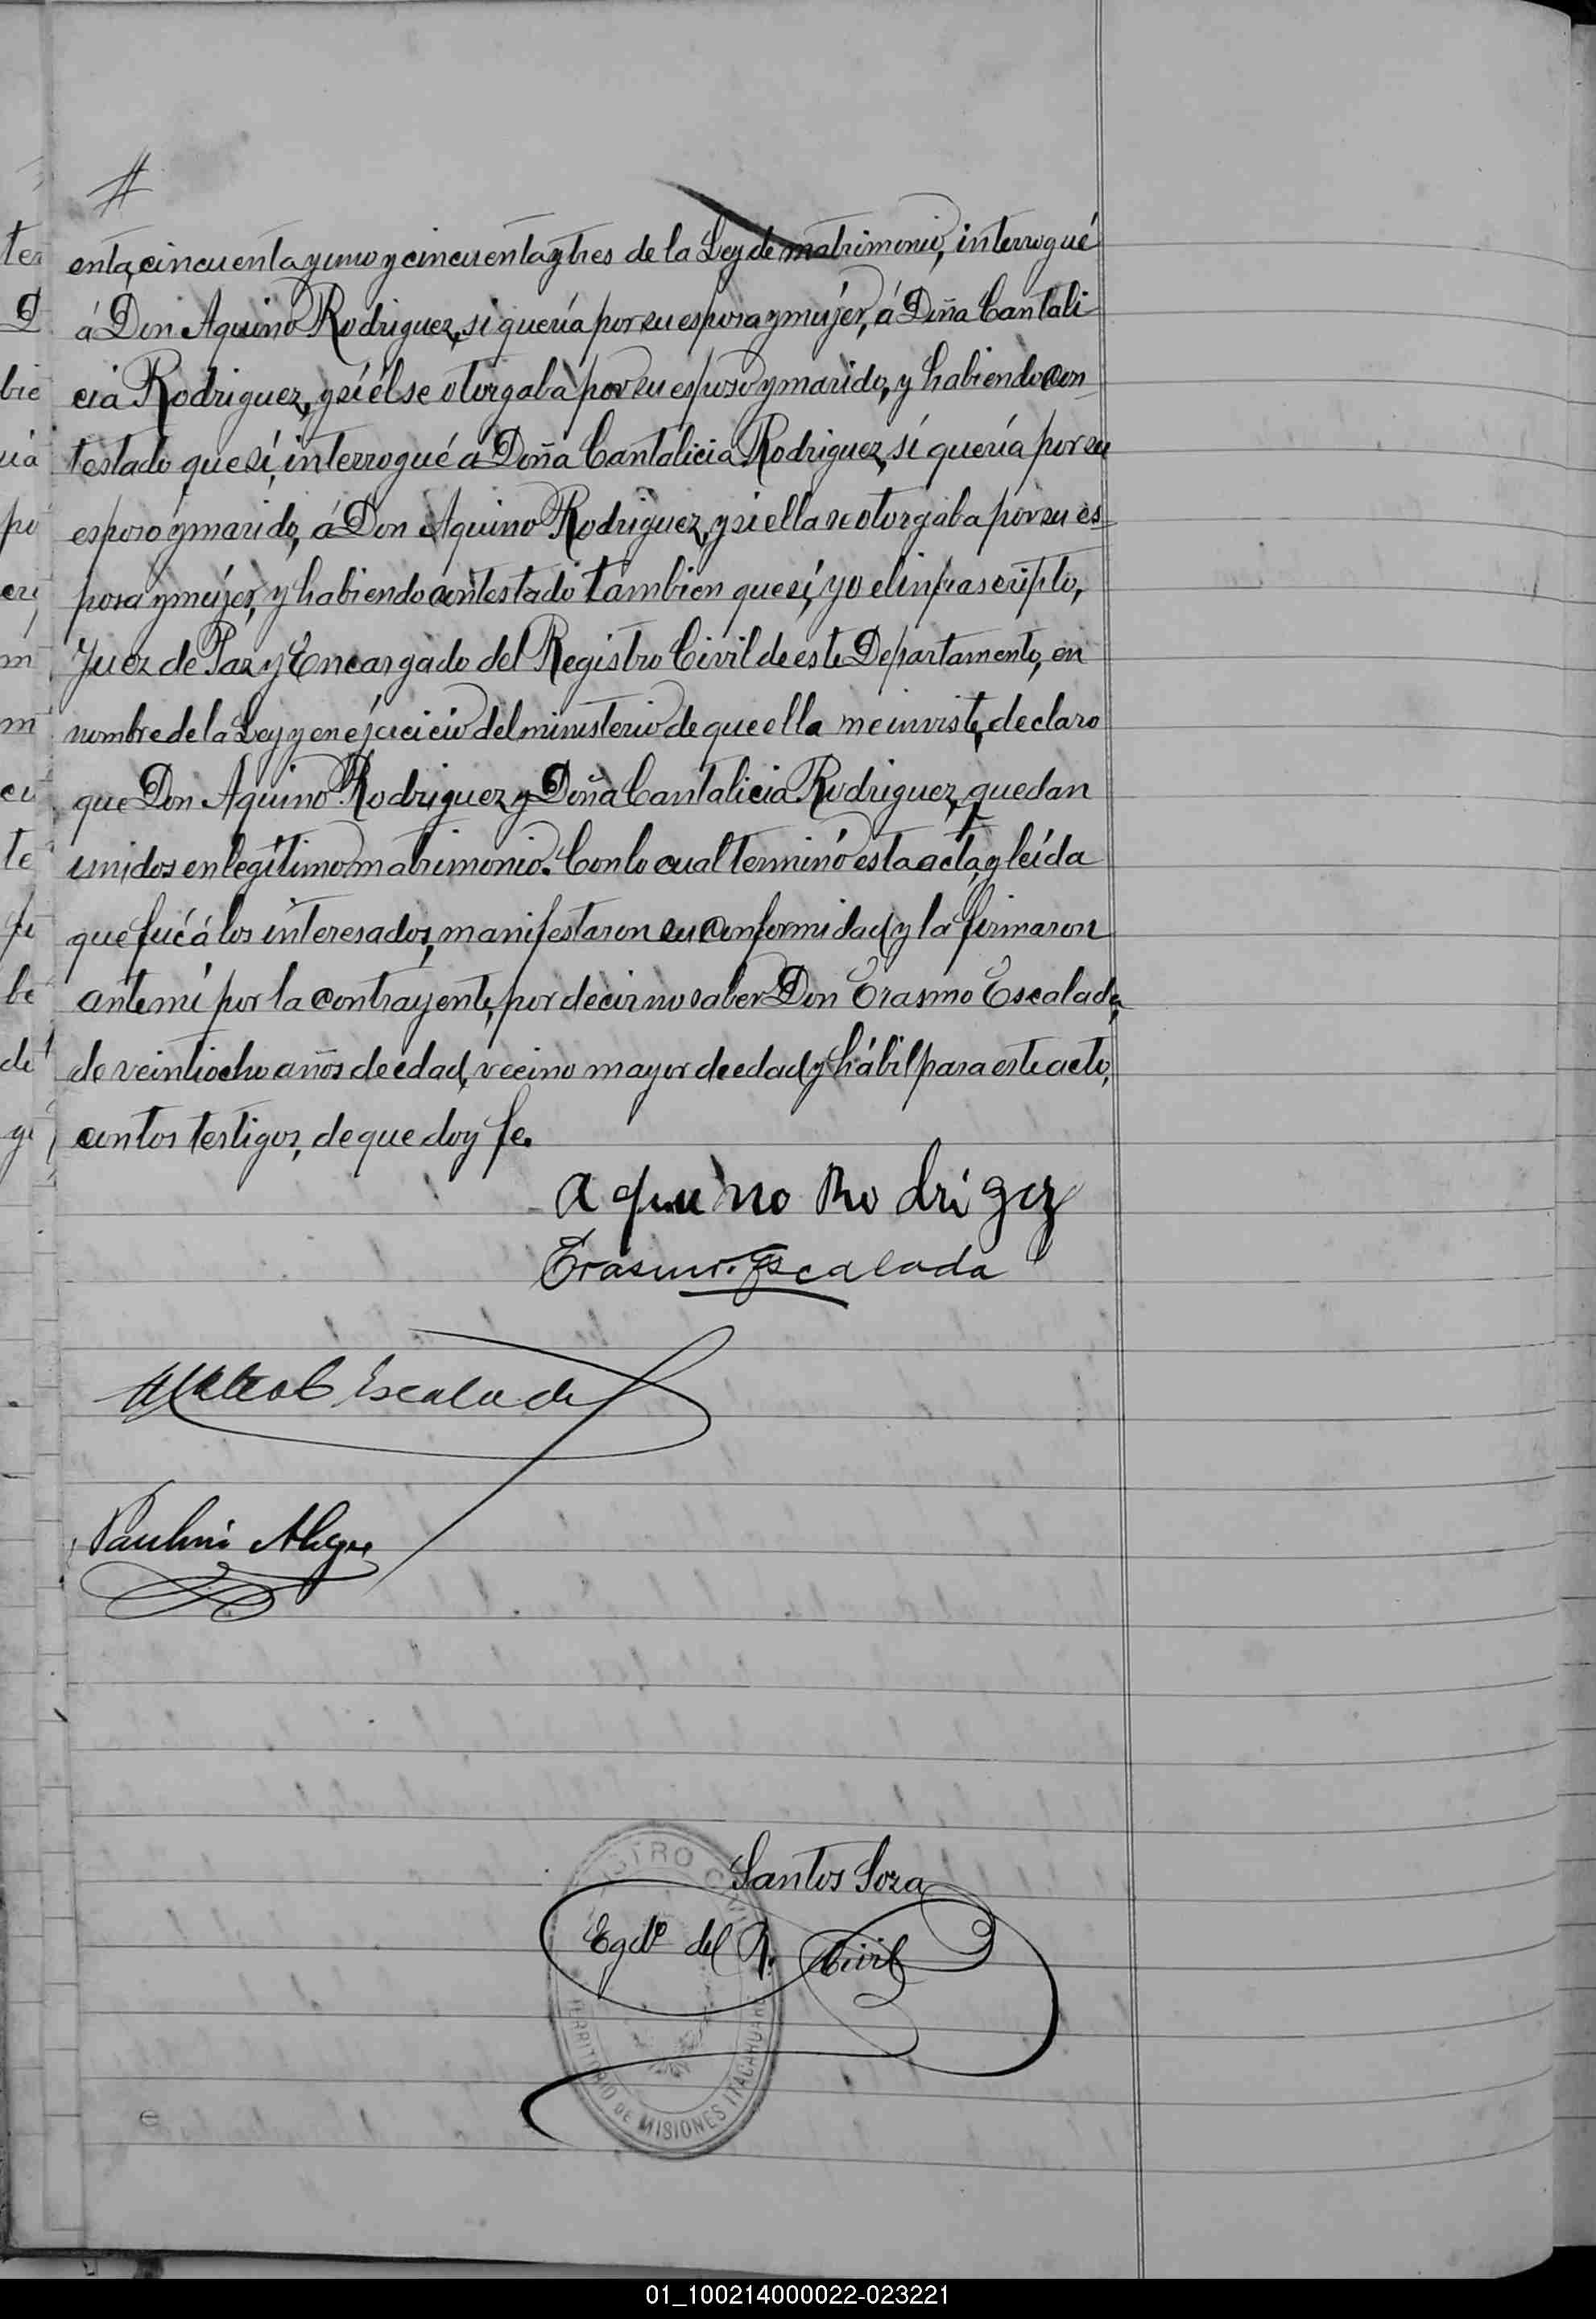 #
enta, cincuenta y uno y cincuenta y tres de la Ley de matrimonio, interrogué
á Don Aquino Rodriguez, si quería por su esposa y mujer, á Doña Cantali-
cia Rodriguez, y si él se otorgaba por su esposo y marido, y habiendo con-
testado que sí, interrogué a Doña Cantalicia Rodriguez, si quería por su
esposo y marido, á Don Aquino Rodriguez, y si ella se otorgaba por su es-
posa y mujer, y habiendo contestado tambien que sí, yo el infrascripto,
Juez de Paz y Encargado del Registro Civil de este Departamento, en
nombre de la Ley y en ejercicio del ministerio de que ella me inviste, declaro
que Don Aquino Rodriguez y Doña Cantalicia Rodriguez, quedan
unidos en legítimo matrimonio. Con lo cual terminó esta acta, y leída
que fué á los interesados, manifestaron su conformidad y la firmaron
ante mí por la contrayente, por decir no saber Don Erasmo Escalada,
de veintiocho años de edad, vecino mayor de edad y hábil para este acto,
con los testigos, de que doy fe.
Aquino Rodrigez
Erasmo Escalada
Escalada
Paulino Alegre
Santos Soza
Egdo del R. Civil
TERRITORIO DE MISIONES ITACARUARE
01_100214000022-023221